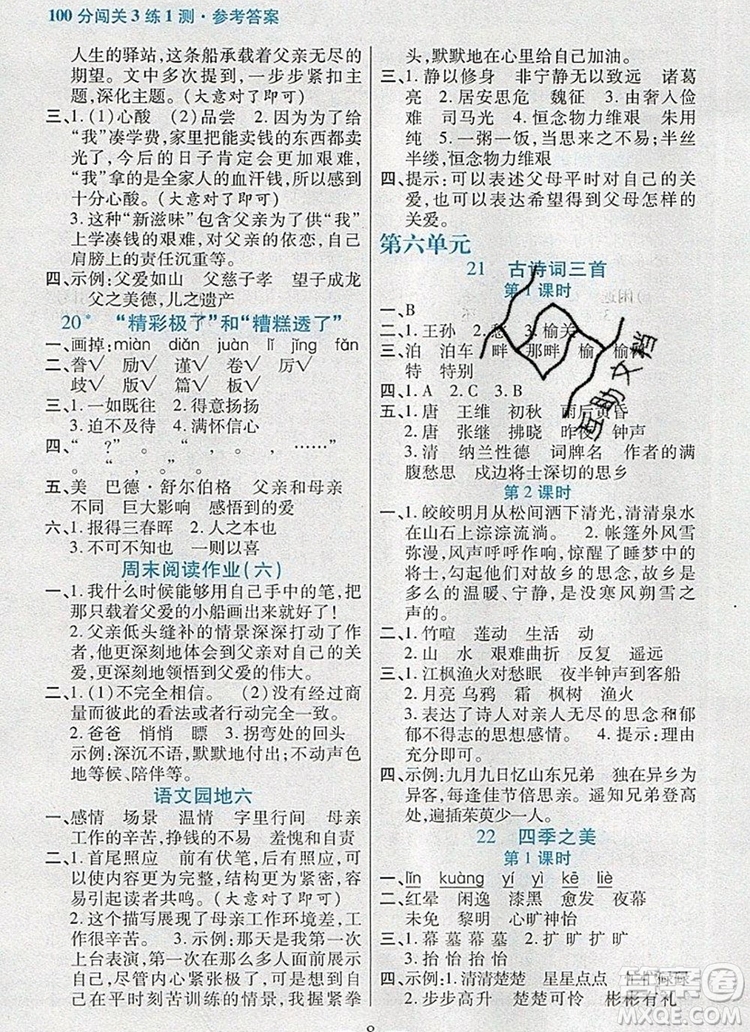 100分闯关3练1测·参考答案
人生的驿站，这条船承载着父亲无尽的
期望。文中多次描写，一步步紧扣主题，
深化主题。(大意对了即可)
三、1.(1)心酸 (2)品尝 2.(1)因为为了给
“我”凑学费，家里把能卖钱的东西都卖
光了，今后的日子肯定会更加艰难，
“我”拿的是全家人的血汗钱，所以感到
十分心酸。(大意对了即可)
3.这种“新滋味”包含着父亲为供“我”
上学凑钱的艰难，对父亲的依恋，自己
肩膀上的责任沉重等。
四、示例：父爱如山 父慈子孝 望子成龙
父之美德，儿之遗产
20* “精彩极了”和“糟糕透了”
一、画掉：miàn diǎn juàn lǐ jǐng fǎn
二、誊√ 励√ 谨√ 作√ 厉√
歧√ 版√ 篇√ 板√ 慈√
三、1.一如既往 2.得意扬扬
3.迫不及待 4.满怀信心
四、“。” “。” “，”“。” “……”
五、美 巴德·舒尔伯格 父亲和母亲
不同 巨大影响 感悟到的爱
六、1.报得三春晖 2.人之本也
3.不可不知也 一则以惧
周末阅读作业(六)
一、1.我什么时候能够用自己手中的笔，把
那只载着父爱的小船画出来就好了。
2.父亲低头缝补的情景深深打动了作
者，使“我”更深刻地体会到父亲对自己的关
爱，更深刻地感受到父爱的伟大。
二、1.(1)不完全相信。 (2)没有经过商
量就把自己的看法与行动强加给对方。
2.爸爸 悄悄 瞟 3.拐弯处的回头
示例：深沉不语，默默地付出；不动声色
地等候、陪伴等。
语文园地六
一、感情 场景 温情 字里行间 母亲
工作的辛苦，挣钱的不易 羞愧和自责
二、1.首尾照应 前后照应 这样写使文
章结构更加严谨，内容更加完整，更能引
起读者共鸣。(大意对了即可)
2.这个描写展现了母亲工作环境的恶
劣、工作的艰辛。 3.示例：那天我第一次
上台表演，演出结束，台下掌声雷动，我
在平时刻苦训练的情景，我握紧拳
头，默默地在心里为自己加油。
三、1.静以修身 非宁静无以致远 诸葛
亮 2.居安思危 魏征 3.由奢入俭
难 司马光 4.恒念物力维艰 朱用
纯 5.一粥一饭，当思来处不易；半丝
半缕，恒念物力维艰
四、提示：可以表述父母平时对自己的关
爱，也可以表达希望得到父母怎样的
关爱。
第六单元
21 古诗词三首
第1课时
一、B
二、1.王孙 2.愁 3.榆关
三、泊 泊车 畔 那畔 榆 榆
特 特别
四、1.A 2.C 3.B
五、1.唐 王维 初秋 雨后黄昏
2.唐 张继 拂晓 昨夜 钟声
3.清 纳兰性德 词牌名 作者的满
腹愁思 戍边将士深切的思乡
第2课时
一、1.皎皎明月从松间洒下清光，清清泉水
在山石上淙淙流淌。 2.帐篷外风雪
弥漫，风声呼呼作响，惊醒了睡梦中的
将士，他们不由想起了故乡，故乡是
多么的温馨、宁静，是没有寒风朔雪之
声的。
二、1.竹喧 莲动 生活 动
2.山 水 艰难困苦 反复 遥远
三、1.江枫渔火对愁眠 夜半钟声到客船
2.月亮 乌鸦 霜 枫树 渔火
3.表达了诗人对亲人无尽的思念和郁
郁不得志的忧愁心情。 4.提示：说明
夜的安静。
四、示例：九月九日忆山东兄弟 独在异乡为
异客，每逢佳节倍思亲。遥知兄弟登高
处，遍插茱萸少一人。
22 四季之美
第1课时
一、lǐn kuàng yí yì kē liè
二、红晕 闲逸 漆黑 旷野 心旷神怡
未免 黎明 心旷神怡
三、1.幕 墓 幕 暮 2.扩 旷 扩 旷
四、示例：1.清清楚楚 星星点点 忙忙碌碌
2.步步高升 楚楚可怜 彬彬有礼
互助文档
8